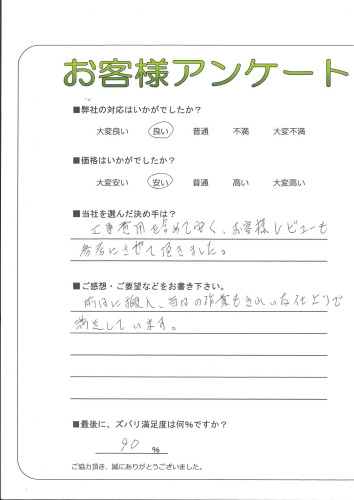 お客様アンケート
■弊社の対応はいかがでしたか？
大変良い 良い 普通 不満 大変不満
■価格はいかがでしたか？
大変安い 安い 普通 高い 大変高い
■当社を選んだ決め手は？
工事費用も含めて安く、お客様レビューも
参考にさせて頂きました。
■ご感想・ご要望などをお書き下さい。
前日に搬入、当日の作業もきれいな仕上りで
満足しています。
■最後に、ズバリ満足度は何％ですか？
90 ％
ご協力頂き、誠にありがとうございました。